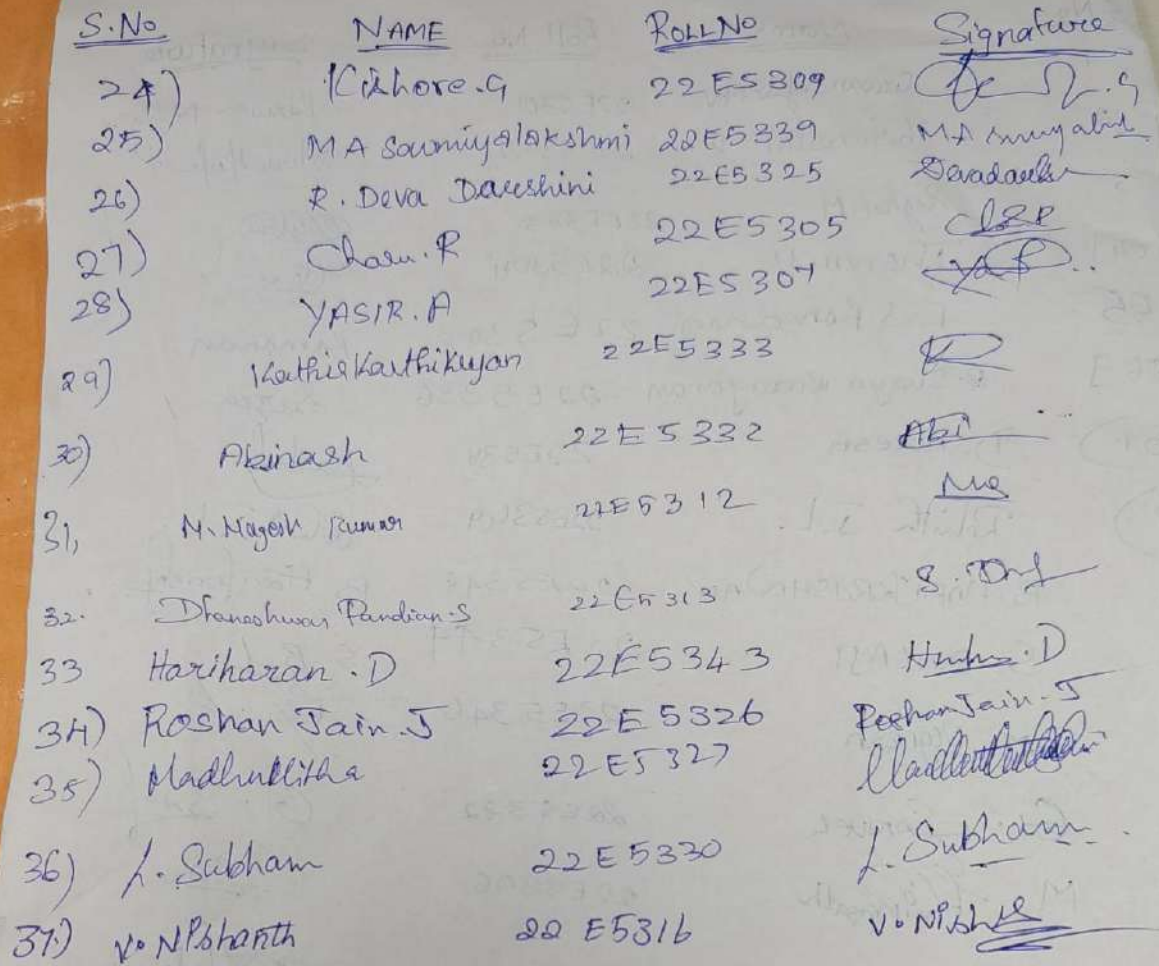 S.No NAME ROLLNO Signature
24) Kishore.G 22E5309
25) MA Sowmiyalakshmi 22E5339 MA
26) R. Deva Dharshini 22E5325
27) Charu.R 22E5305
28) YASIR.A 22E5307
29) Kathir Karthikeyan 22E5333
30) Abinash 22E5332 Abi
31, M. Nagesh Kumar 22E5312
32. Dhaneshwar Pandian.S 22E5313
33 Hariharan.D 22E5343
34) Roshan Jain.J 22E5326 Roshan Jain.J
35) Madhullitha 22E5327
36) L. Subham 22E5330 L. Subham
37) V. Nishanth 22E5316